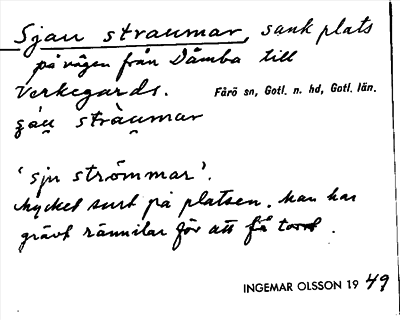 Sjau straumar, sank plats
på vägen från Dämba till
Verkegards. Fårö sn, Gotl. n. hd, Gotl. län.
šáu̯ stràu̯mar
'sju strömmar'.
Mycket surt på platsen. Man har
grävt rännilar för att få torrt.
INGEMAR OLSSON 1949